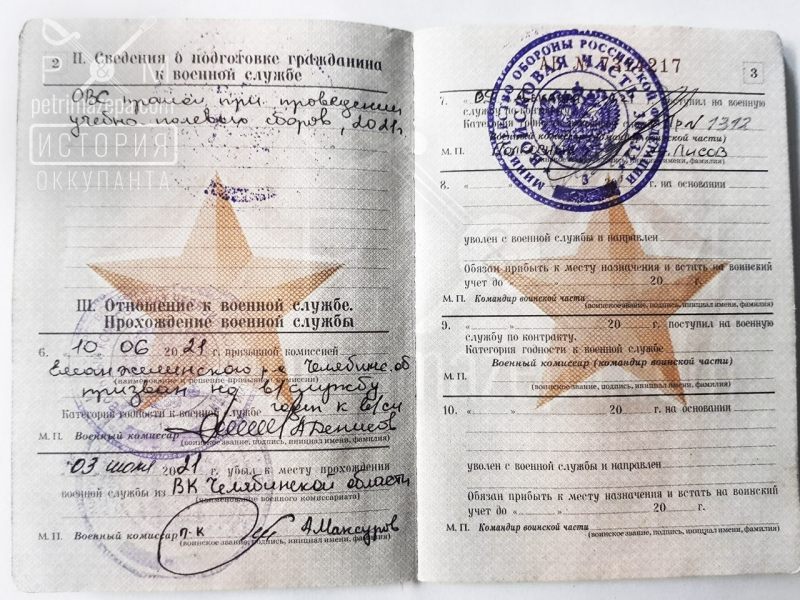 2 II. Сведения о подготовке гражданина
к военной службе
ОВС прошёл при проведении
учебно полевых сборов, 2021г
petrimazepa.com
ИСТОРИЯ
ОККУПАНТА
III. Отношение к военной службе.
Прохождение военной службы
6. 10 06 2021 г. призывной комиссией
Еманжелинского р-а Челябинс. об
(наименование и решение призывной комиссии)
призван на в/службу
Категория годности к военной службе годен к в/сл
М. П. Военный комиссар А Денисов
(воинское звание, подпись, инициал имени, фамилия)
03 июля 2021 г. убыл к месту прохождения
военной службы из ВК Челябинской области
(наименование военного комиссариата)
М. П. Военный комиссар п-к А Мансуров
(воинское звание, подпись, инициал имени, фамилия)
МИНИСТЕРСТВО ОБОРОНЫ РОССИЙСКОЙ ФЕДЕРАЦИИ
ВОЙСКОВАЯ ЧАСТЬ
3
АВ № 7214217
3
7. поступил на военную
службу по
Категория
Пр N 1312
Военный комиссар (командир воинской части)
М. П. Лисов
(воинское звание, подпись, инициал имени, фамилия)
8. " " 20 г. на основании
уволен с военной службы и направлен
Обязан прибыть к месту назначения и встать на воинский
учет до " " 20 г.
М. П. Командир воинской части
(воинское звание, подпись, инициал имени, фамилия)
9. " " 20 г. поступил на военную
службу по контракту.
Категория годности к военной службе
Военный комиссар (командир воинской части)
М. П.
(воинское звание, подпись, инициал имени, фамилия)
10. " " 20 г. на основании
уволен с военной службы и направлен
Обязан прибыть к месту назначения и встать на воинский
учет до " " 20 г.
М. П. Командир воинской части
(воинское звание, подпись, инициал имени, фамилия)